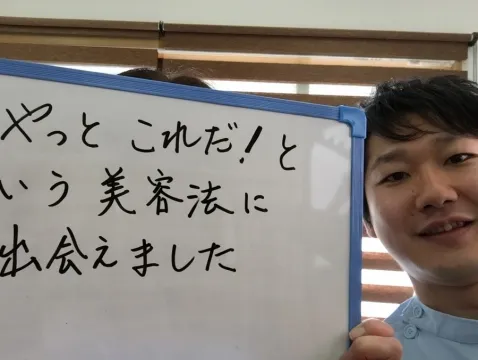 やっと これだ!と
いう 美容法に
出会えました